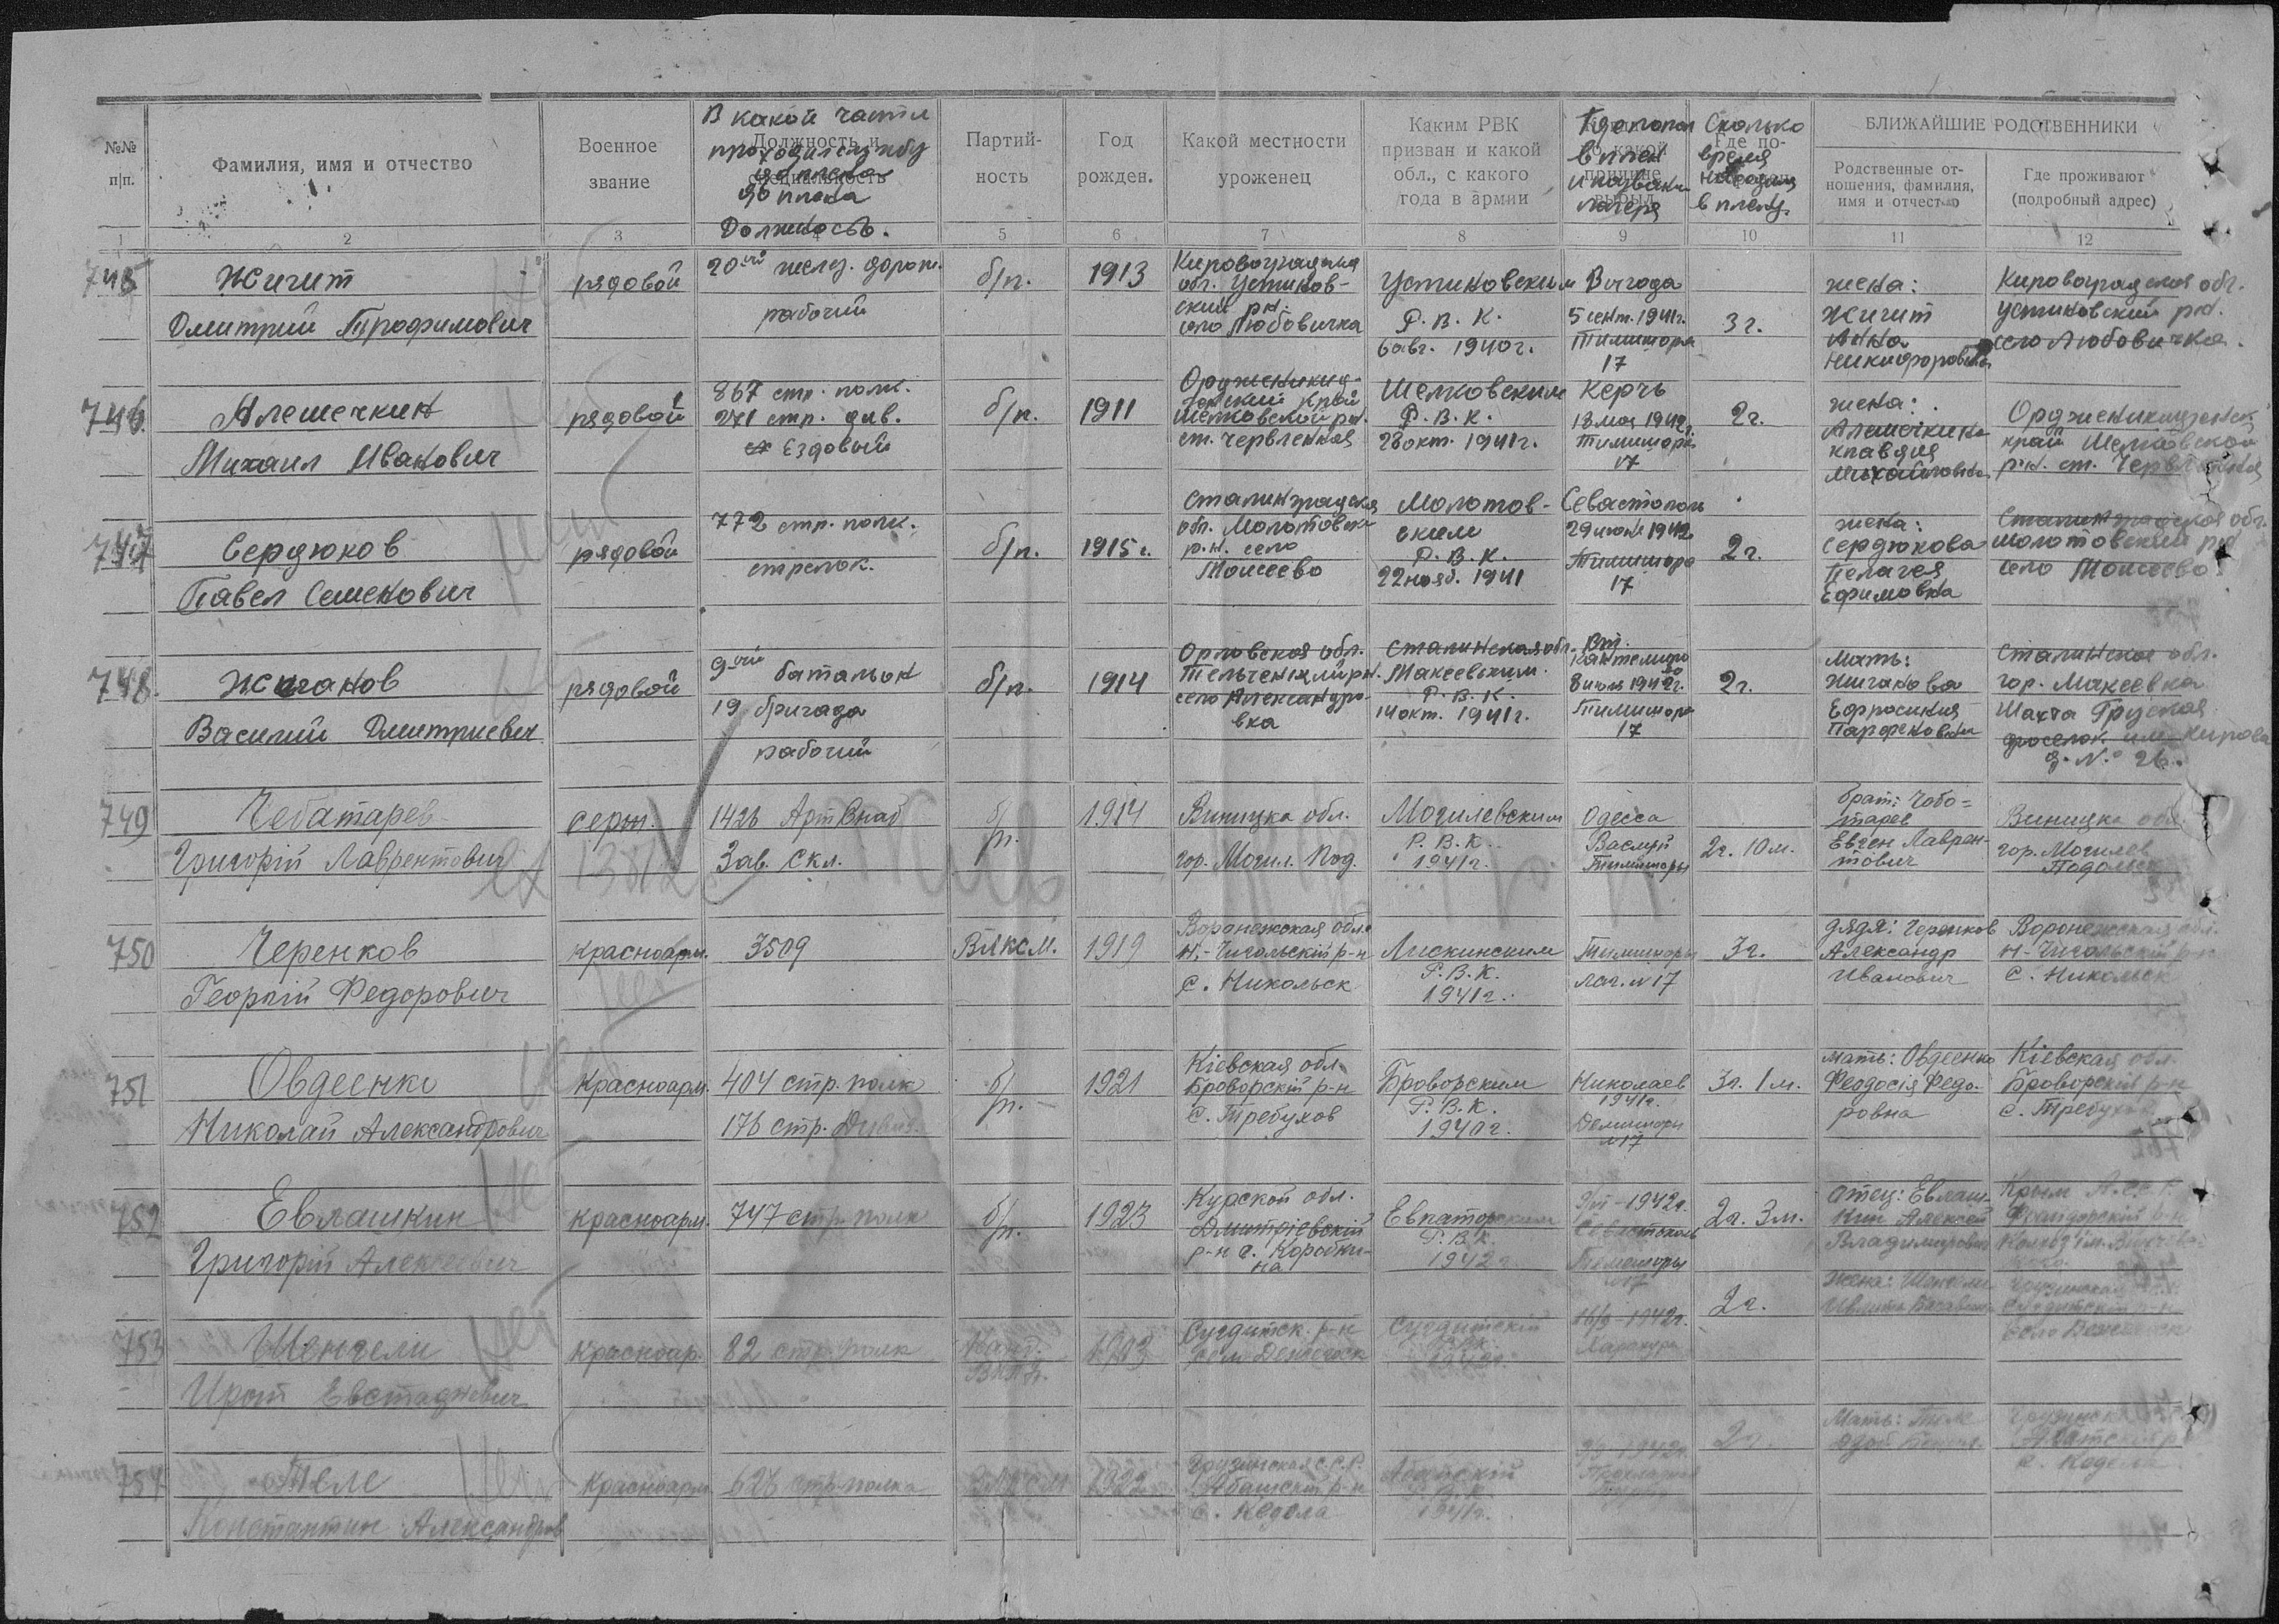 №№ п|п.
Фамилия, имя и отчество
Военное звание
В какой части проходил службу до плена
Должность.
Должность и специальность
Партий-
ность
Год
рожден.
Какой местности
уроженец
Каким РВК
призван и какой
обл., с какого
года в армии
Где попал
в плен
и название
лагеря
Сколько
время
находился
в плену.
БЛИЖАЙШИЕ РОДСТВЕННИКИ
Родственные от-
ношения, фамилия,
имя и отчество
Где проживают
(подробный адрес)
1 2 3 4 5 6 7 8 9 10 11 12
745
Жигит
Дмитрий Трофимович
рядовой
20ый желез. дорож.
рабочий
б/п.
1913
Кировоградская
обл. Устинов-
ский рн.
село Любовичка
Устиновским
Р. В. К.
6 авг. 1940г.
Вигода
5 сент. 1941г.
Тимишора
17
3 г.
жена:
Жигит
Анна
Никифоровна
Кировоградская обл.
Устиновский рн.
село Любовичка.
746.
Алешечкин
Михаил Иванович
рядовой
867 стр. полк.
271 стр. див.
Ездовый
б/п.
1911
Орджоникид-
зевский край
Шелковской рн.
ст. Червленная
Шелковским
Р. В. К.
28 окт. 1941г.
Керчь
18 мая 1942г.
Тимишора
17
2г.
жена:
Алешечкина
Клавдия
Михайловна
Орджоникидзевск
край Шелковской
р.н. ст. Червленная
747
Сердюков
Павел Семенович
рядовой
772 стр. полк.
стрелок.
б/п.
1915 г.
Сталинградская
обл. Молотовск
р.н. село
Моисеево
Молотов-
ским
Р. В. К.
22 нояб. 1941
Севастополь
29 июня 1942
Тимишора
17
2г.
жена:
Сердюкова
Пелагея
Ефимовна
Сталинградская обл.
Молотовский рн
село Моисеево
748.
Жиганов
Василий Дмитриевич
рядовой
9ый батальон
19 бригада
рабочий
б/п.
1914
Орловская обл.
Тельченский рн.
село Александро-
вка
Сталинская обл.
Макеевским
Р. В. К.
14 окт. 1941г.
ст.
Кантемиро
8 июля 1942г.
Тимишора
17
2г.
мать:
Жиганова
Ефросиния
Парфеновна
Сталинская обл.
гор. Макеевка
Шахта Грузская
поселок им. Кирова
д. N: 26.
749
Чебатарев
Григорій Лаврентович
серж.
1426 Арт Снаб
Зав. Скл.
б/п.
1914
Виницка обл.
гор. Могил. Под.
Могилевским
Р. В. К.
1941г.
Одесса
Тимишоры
2г. 10м.
брат: Чобо-
тарев
Евген Лаврен-
тович
Виницка обл.
гор. Могилев
Подольск
750
Черенков
Георгій Федорович
Красноарм.
3509
ВЛКСМ.
1919
Воронежская обл.
Н.-Чигольскій р-н
с. Никольск
Лискинским
Р. В. К.
1941г.
Тимишоры
лаг. N 17
3г.
дядя: Черенков
Александр
Иванович
Воронежская обл.
Н-Чигольскій р-н
с. Никольск
751
Овдеенко
Николай Александрович
Красноарм.
404 стр. полк
176 стр. Дивиз.
б/п.
1921
Кіевская обл.
Броворскій р-н
с. Требухов
Броворским
Р. В. К.
1940г.
Николаев
1941г.
Демишоры
N 17
3г. 1м.
мать: Овдеенко
Феодосія Федо-
ровна
Кіевская обл.
Броворскій р-н
с. Требухов
752
Евлашкин
Григорій Алексеевич
Красноарм.
747 стр. полк
б/п.
1923
Курской обл.
Дмитріевскій
р-н с. Коробки-
на
Евпаторским
Р. В. К.
1942г.
1942г.
Севастополь
Тимишоры
17
2г. 3м.
отец: Евлаш-
кин Алексей
Владимирович
Крым А.С.С.Р.
753
Шенгели
Ирот Евстадиевич
Красноар.
82 стр. полк
Канд.
1913
Сугдитск. р-н
Сугдитскій
Р.В.К.
1942г.
16/9-1942г.
2г.
Жена: Шенгели
Грузинская
754
Теле
Константин Александров
Красноарм
626 стр. полка
ВЛКСМ
1922
Грузинская С.С.Р.
Абашскій р-н
с. Кодола
Абашскій
Р.В.К.
1941г.
1942г.
2г.
Мать: Теле